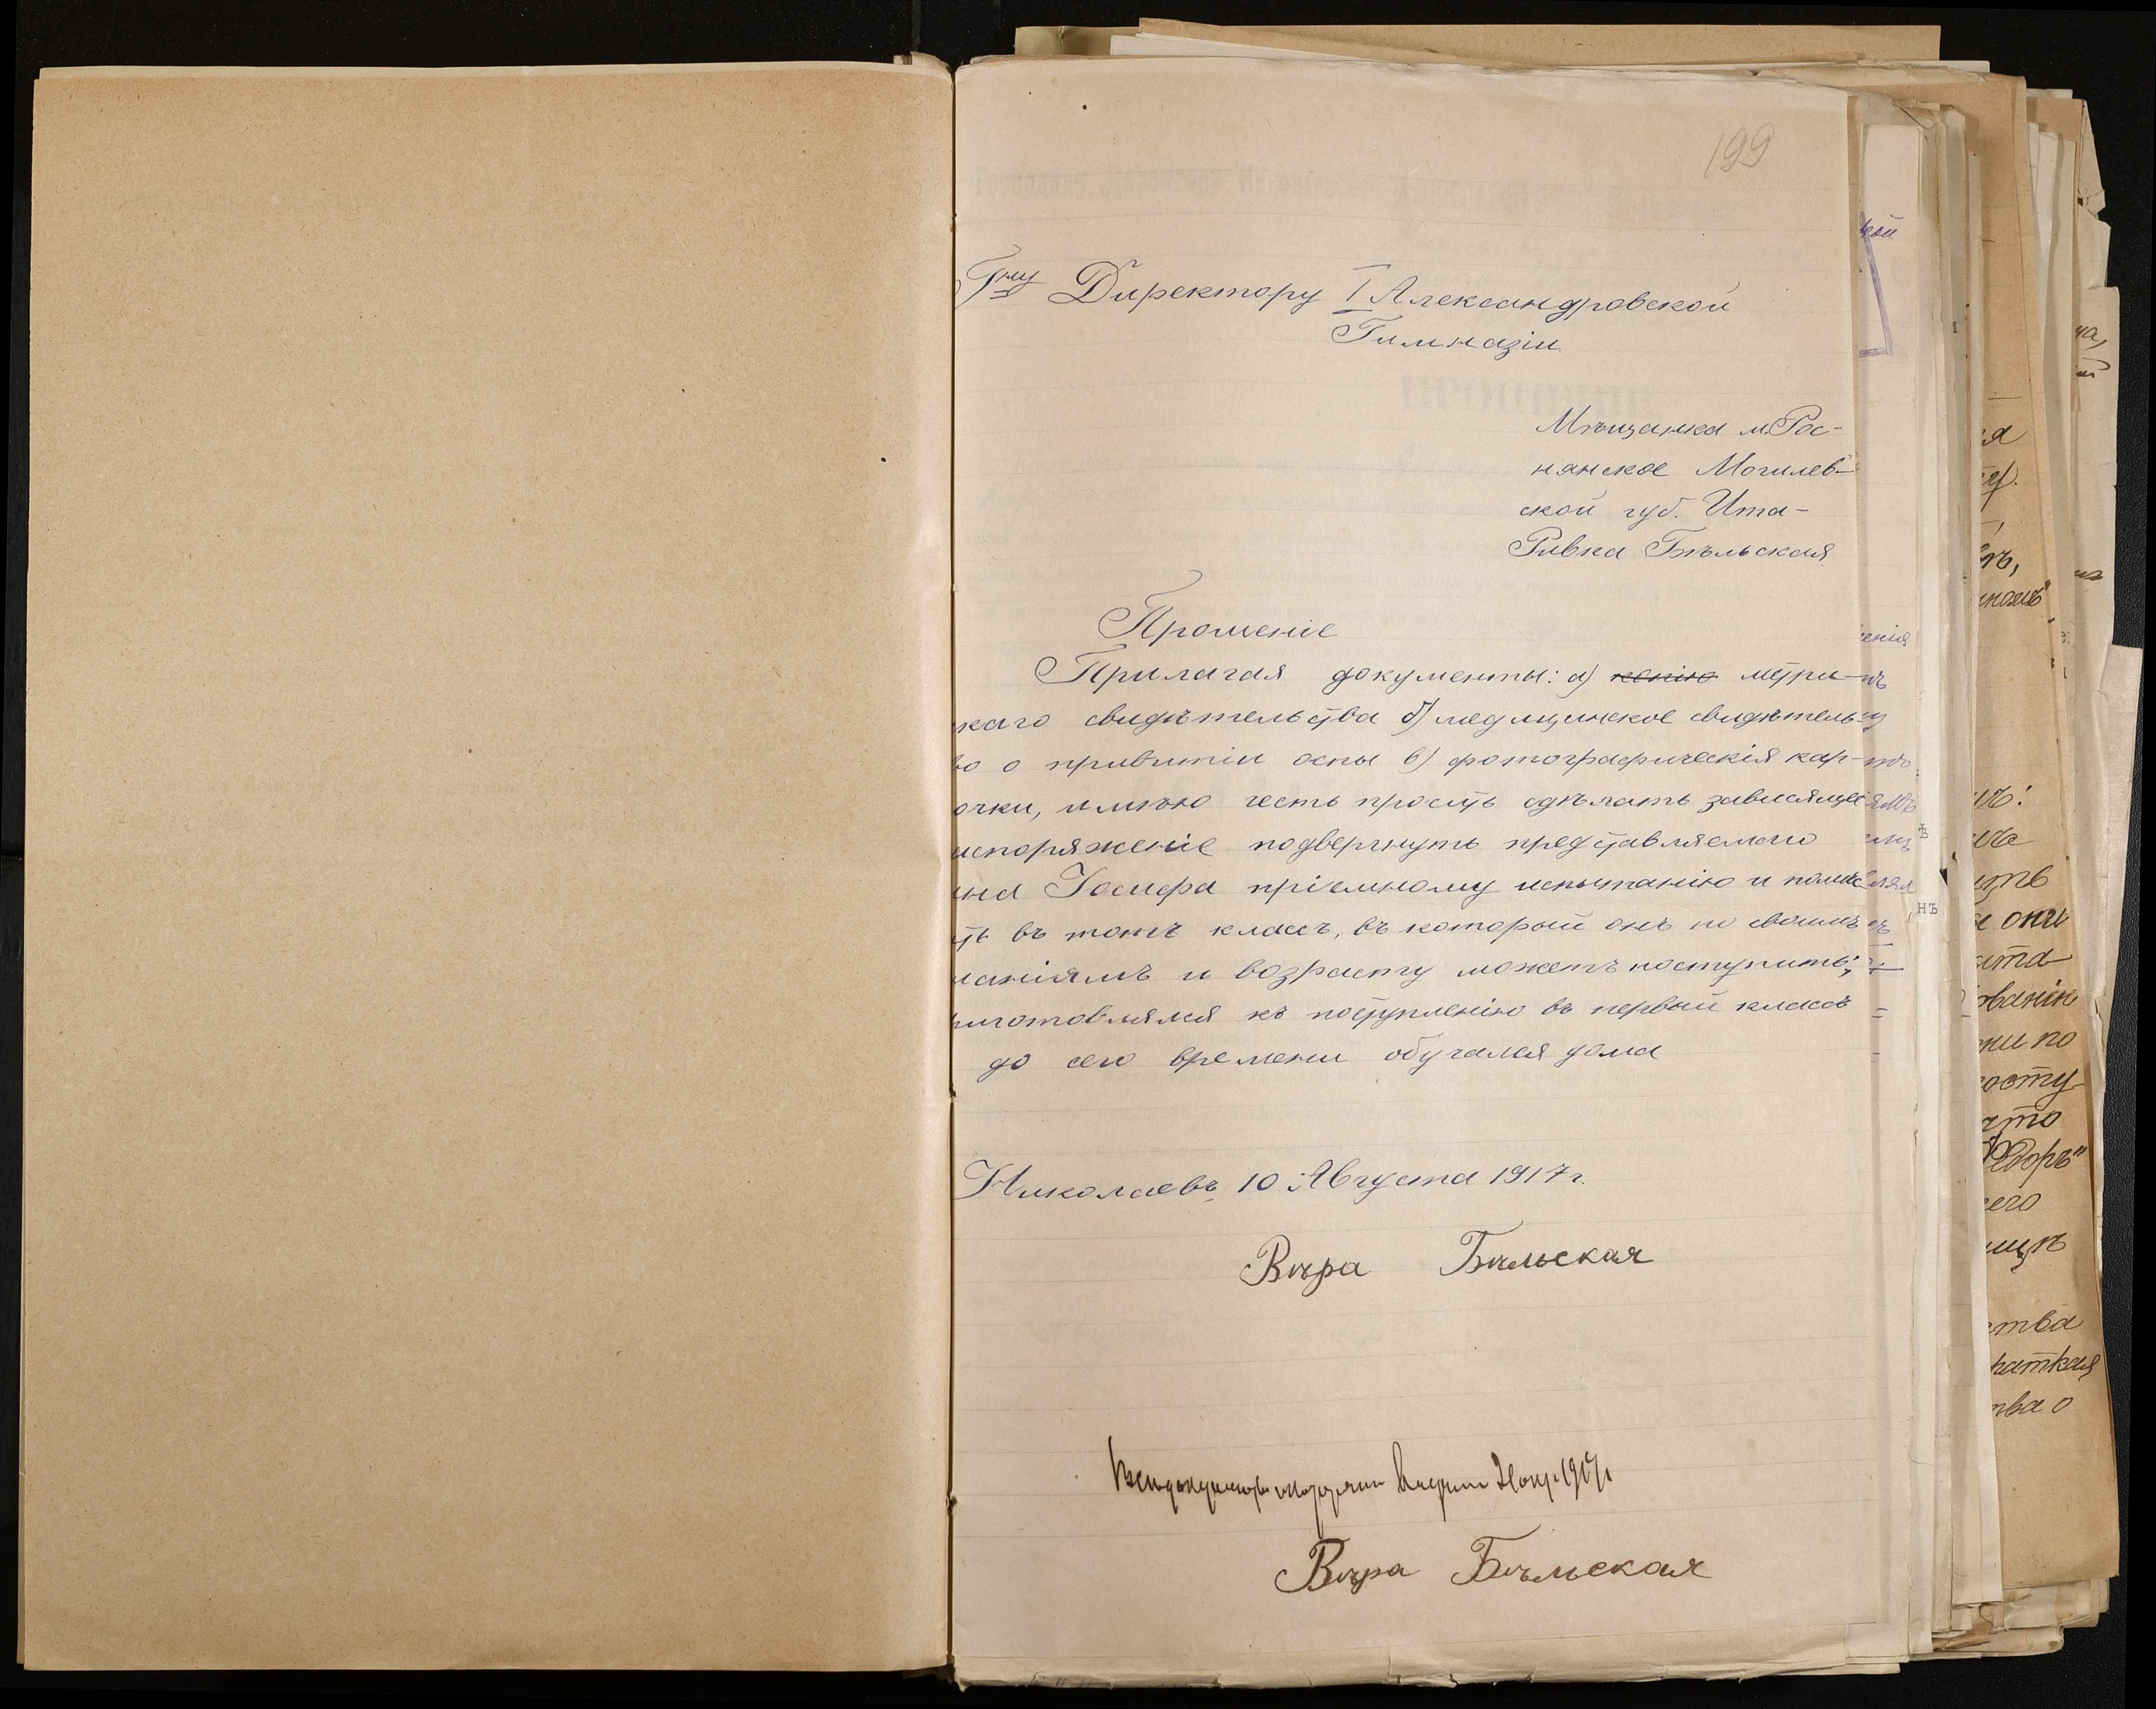 199
Гну Директору I Александровской
Гимназіи
Мѣщанка м. Рос-
нянское Могилев-
ской губ. Ита-
Ривка Бѣльская
Прошеніе
Прилагая документы: а) копію метри-
каго свидѣтельства б) медицинское свидѣтель-
во о привитіи оспы в) фотографическія кар-
очки, имѣю честь просить сдѣлать зависящее
аспоряженіе подвергнуть представляемаго
ына Іосифа пріемному испытанію и помѣс
ть въ тотъ классъ, въ который онъ по своимъ
наніямъ и возрасту можетъ поступить;
риготовлялся къ поступленію въ первый классъ
до сего времени обучался дома
Николаевъ 10 Августа 1917 г.
Вѣра Бѣльская
1917 г
Вѣра Бѣльская